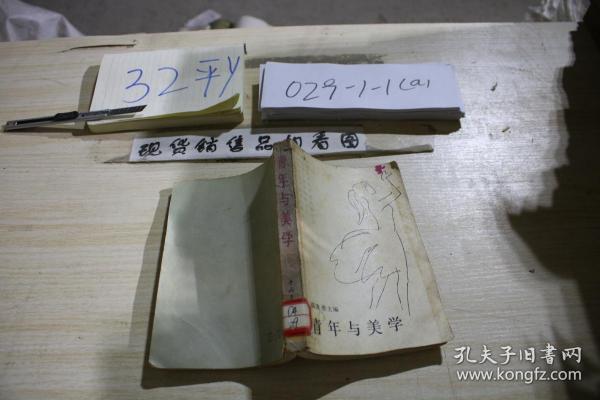 32平Y
029-1-1(a)
现货销售品相看图
青年与美学
主编
青年与美学
孔夫子旧书网
www.kongfz.com